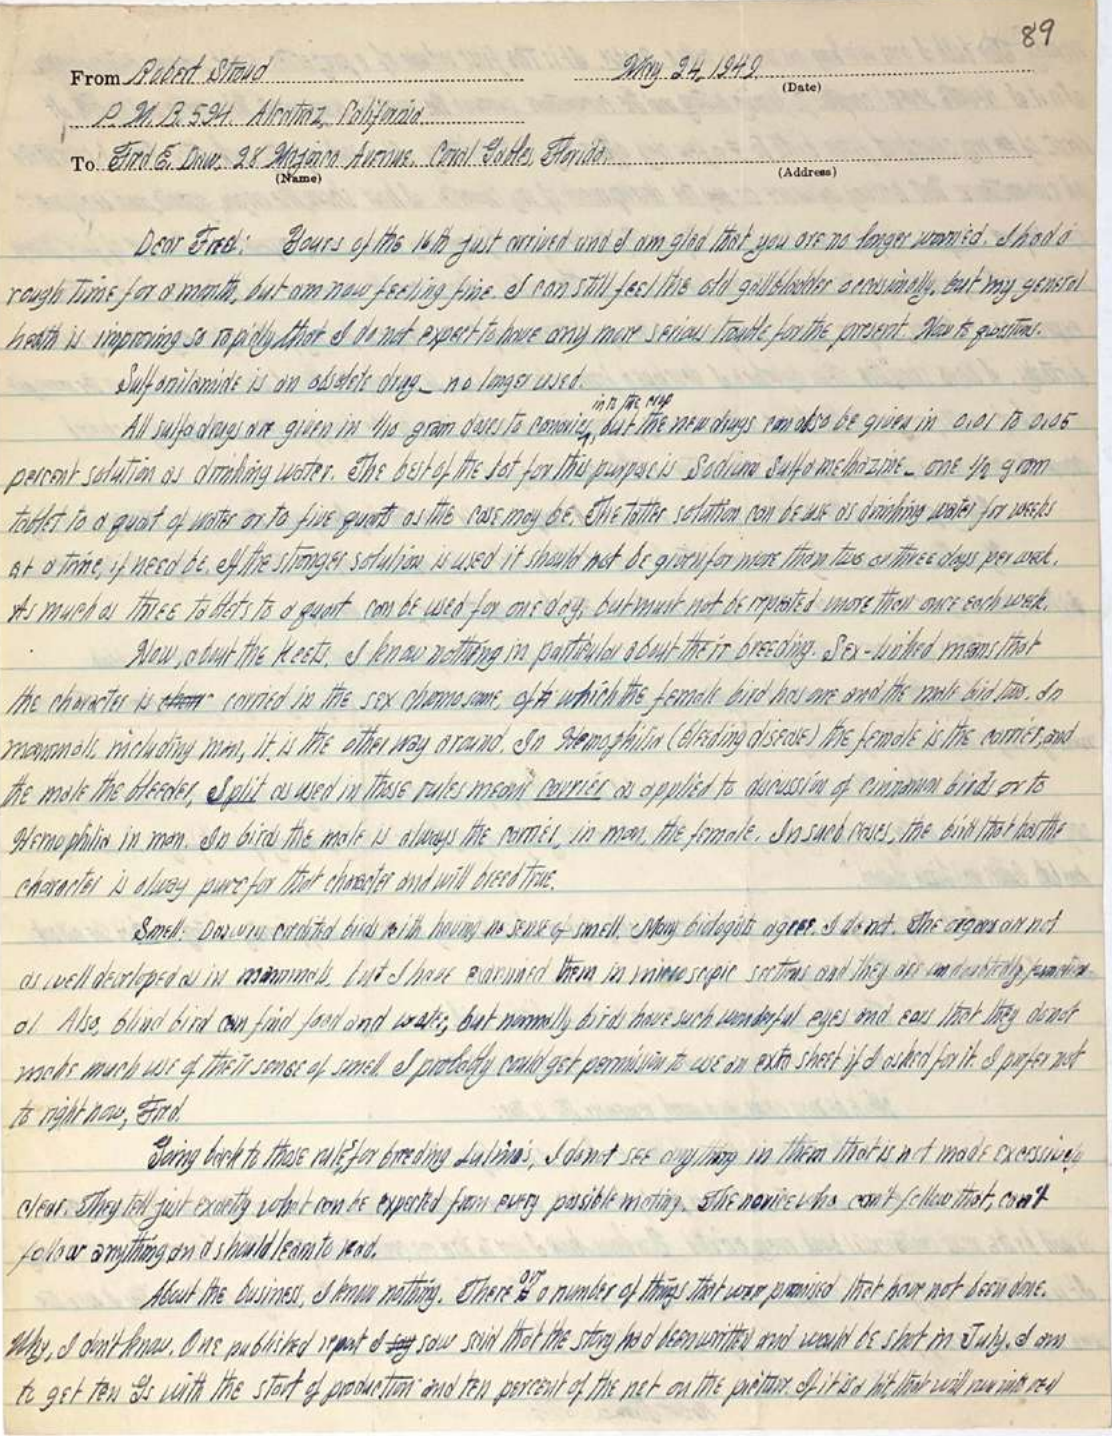 89
From Robert Stroud May 24, 1949
(Date)
P.M.B. 594. Alcatraz, California.
To Fred E. Daw, 28 Majorca Avenue, Coral Gables, Florida.
(Name) (Address)
Dear Fred: Yours of the 16th just arrived and I am glad that you are no longer worried. I had a
rough time for a month, but am now feeling fine. I can still feel the old gallbladder occasionally, but my general
health is improving so rapidly that I do not expect to have any more serious trouble for the present. Now to questions.
Sulfanilamide is an obsolete drug_ no longer used.
into the crop
All sulfa drugs are given in 1/10 grain doses to canaries, but the new drugs can also be given in 0.01 to 0.05
percent solution as drinking water. The best of the lot for this purpose is Sodium Sulfamethazine_ one 1/2 gram
tablet to a quart of water or to five quarts as the case may be. The latter solution can be use as drinking water for weeks
at a time, if need be. If the stronger solution is used it should not be given for more than two or three days per week.
As much as three tablets to a quart can be used for one day, but must not be repeated more than once each week.
Now, about the Keets. I know nothing in particular about their breeding. Sex-linked means that
the character is carried in the sex chromosome, of which the female bird has one and the male bird two. In
mammals, including man, it is the other way around. In Hemophilia (bleeding disease) the female is the carrier, and
the male the bleeder, Split as used in those rules means carrier as applied to discussion of cinnamon birds or to
Hemophilia in man. In birds the male is always the carrier, in man, the female. In such cases, the bird that has the
character is alway pure for that character and will breed true.
Smell: Darwin credited birds with having no sense of smell. Many biologists agree. I do not. The organs are not
as well developed as in mammals, but I have examined them in microscopic sections and they are undoubtedly function-
al. Also, blind bird can find food and water, but normally birds have such wonderful eyes and ears that they do not
make much use of their sense of smell. I probably could get permission to use an extra sheet if I asked for it. I prefer not
to right now, Fred.
Going back to those rules for breeding Lutino's, I do not see anything in them that is not made excessively
clear. They tell just exactly what can be expected from every possible mating. The novice who can't follow that, can't
follow anything and should learn to read.
About the business, I know nothing. There are a number of things that were promised that have not been done.
Why, I don't know. One published report I saw said that the story had been written and would be shot in July. I am
to get ten Gs with the start of production and ten percent of the net on the picture. If it is a hit that will run into real